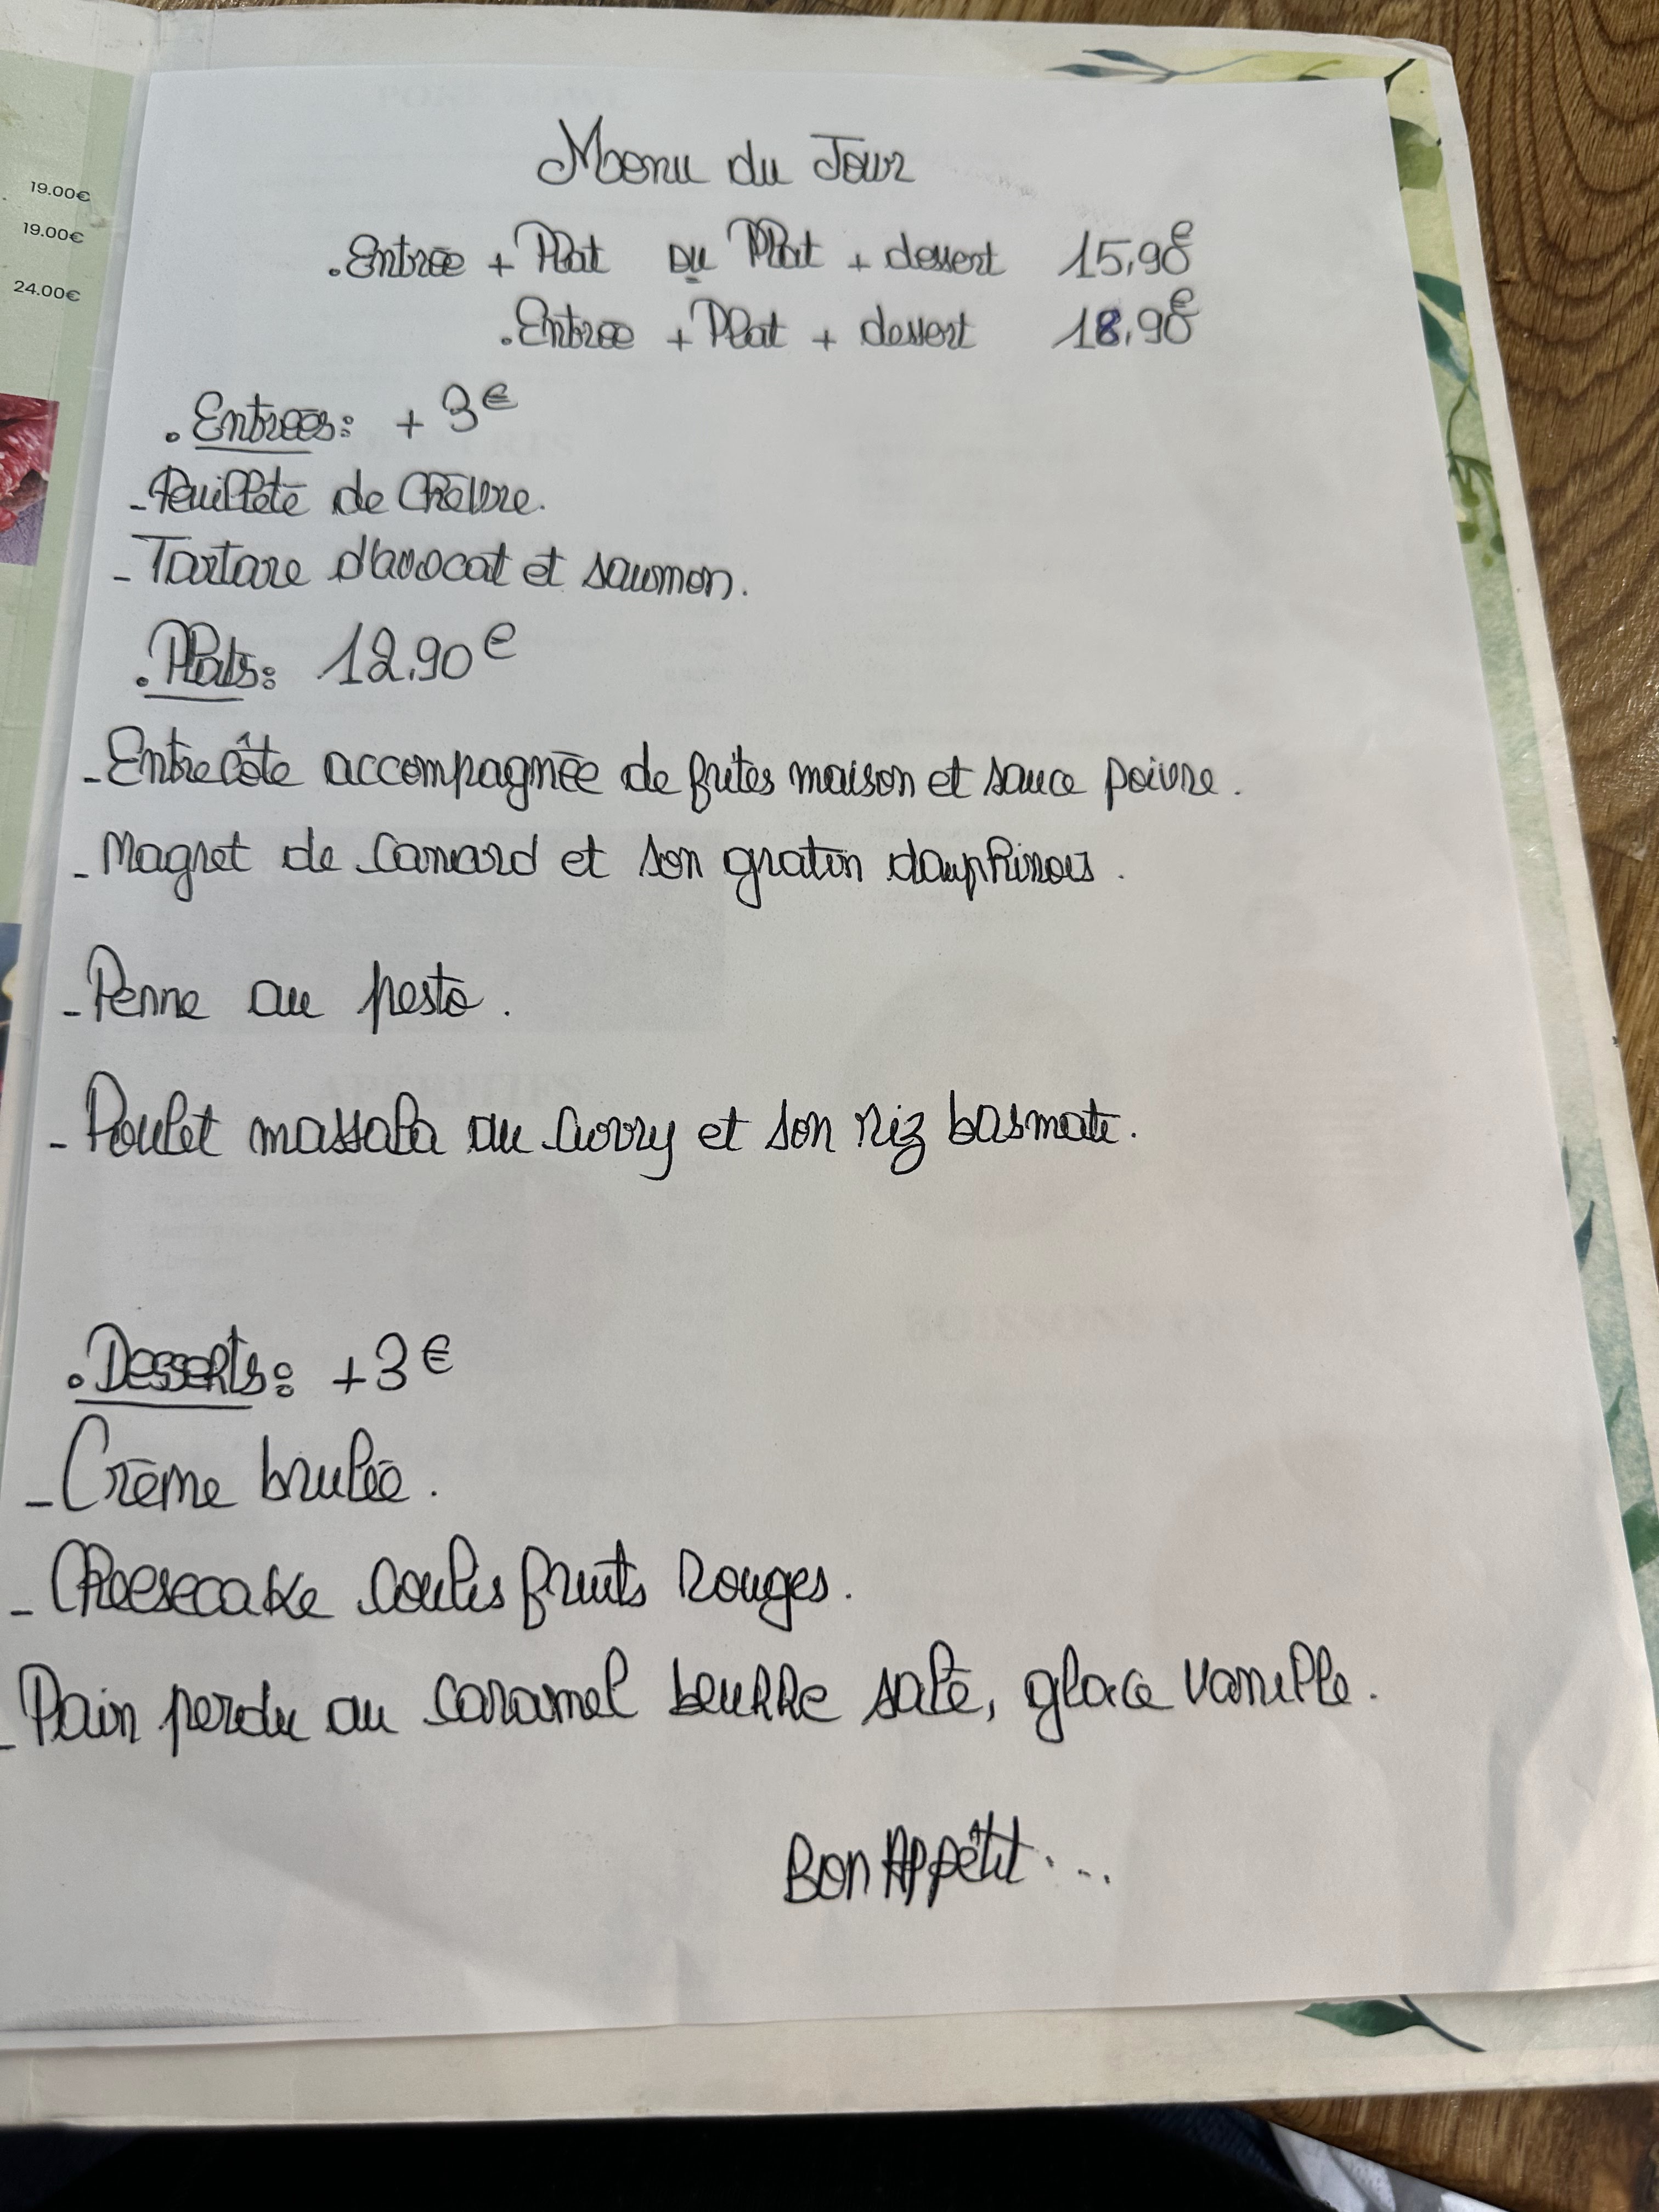 19.00€
19.00€
24.00€
Menu du Jour
.Entrée + Plat ou Plat + dessert 15,90€
.Entrée + Plat + dessert 18,90€
. Entrées: + 3€
- Feuilleté de Chèvre.
- Tartare d'avocat et saumon.
. Plats: 12,90€
- Entrecôte accompagnée de frites maison et sauce poivre.
- Magret de Canard et son gratin dauphinois.
- Penne au pesto.
- Poulet massala au curry et son riz basmati.
. Desserts: +3€
- Crème brulée.
- Cheesecake coulis fruits Rouges.
- Pain perdu au caramel beurre salé, glace vanille.
Bon Appêtit....